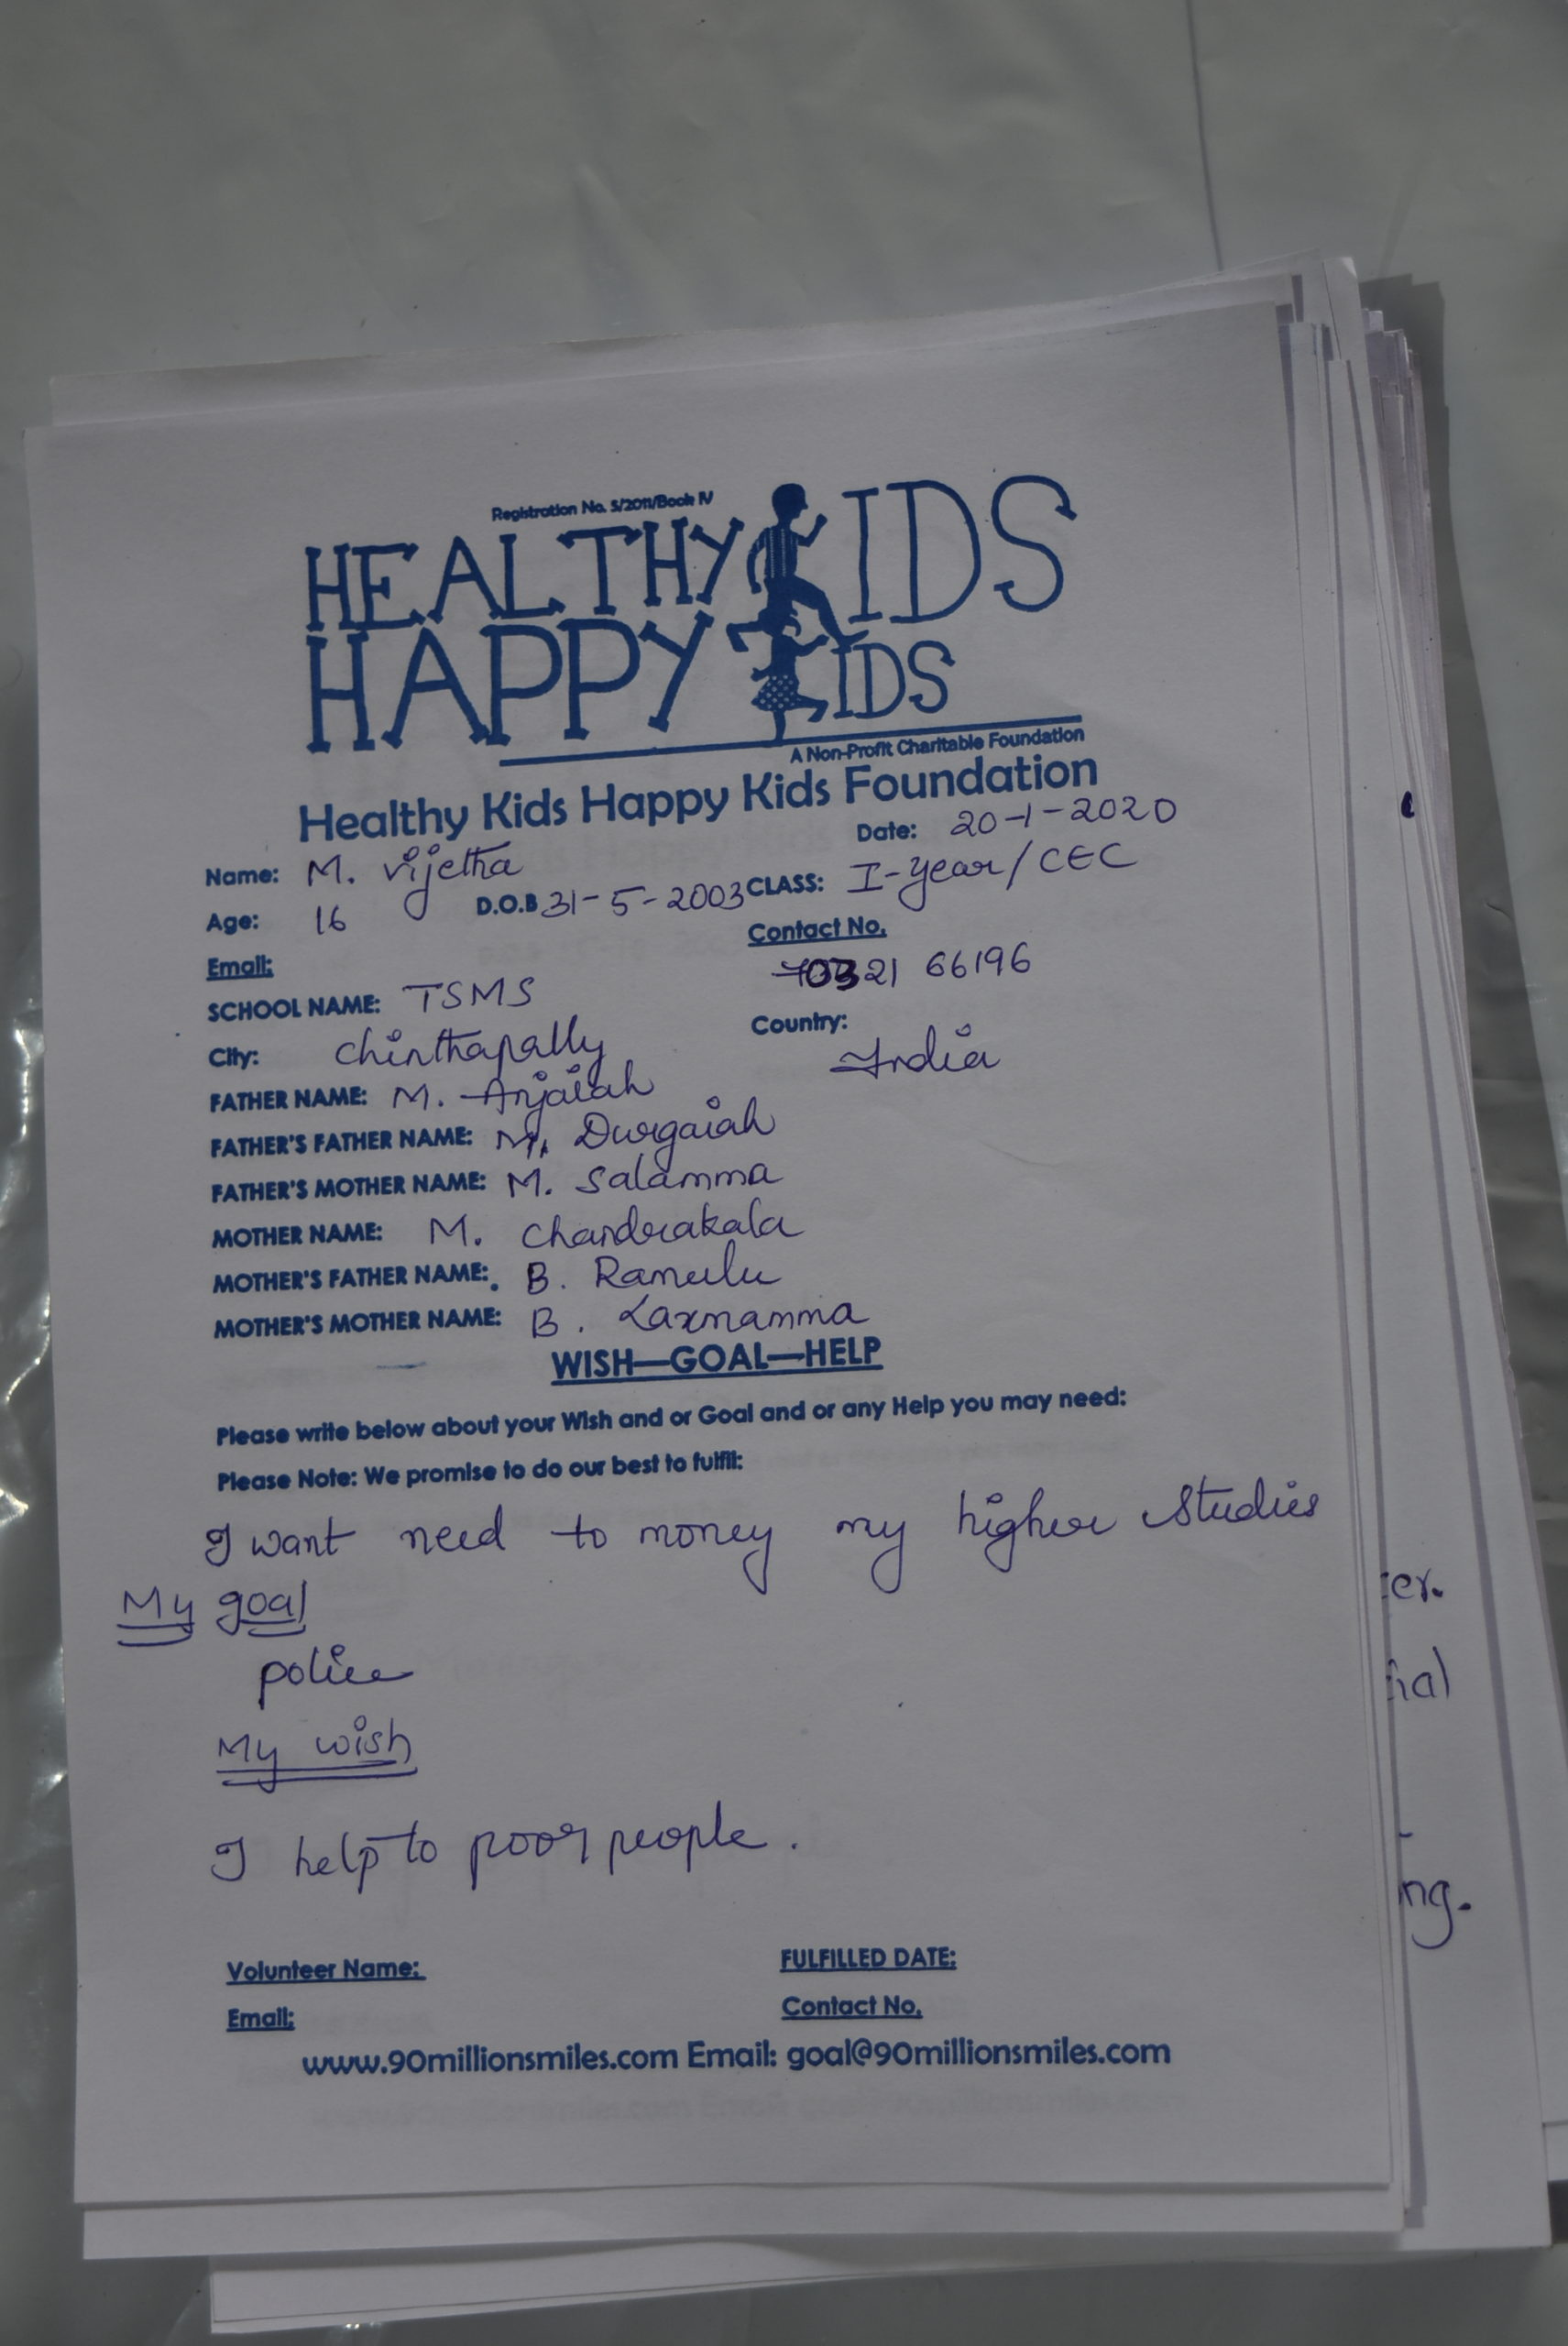 Registration No. 5/2011/Book IV
HEALTHY KIDS
HAPPY KIDS
A Non-Profit Charitable Foundation
Healthy Kids Happy Kids Foundation
Date: 20-1-2020
Name: M. Vijetha
D.O.B 31-5-2003 CLASS: I-year/CEC
Age: 16
Contact No.
Email: 21 66196
SCHOOL NAME: TSMS
Country:
City: Chinthapally India
FATHER NAME: M. Anjaiah
FATHER'S FATHER NAME: M. Durgaiah
FATHER'S MOTHER NAME: M. Salamma
MOTHER NAME: M. Chandrakala
MOTHER'S FATHER NAME: B. Ramulu
MOTHER'S MOTHER NAME: B. Laxmamma
WISH—GOAL—HELP
Please write below about your Wish and or Goal and or any Help you may need:
Please Note: We promise to do our best to fulfil:
I want need to money my higher studies
My goal
police
My wish
I help to poor people.
Volunteer Name: FULFILLED DATE:
Email: Contact No.
www.90millionsmiles.com Email: goal@90millionsmiles.com